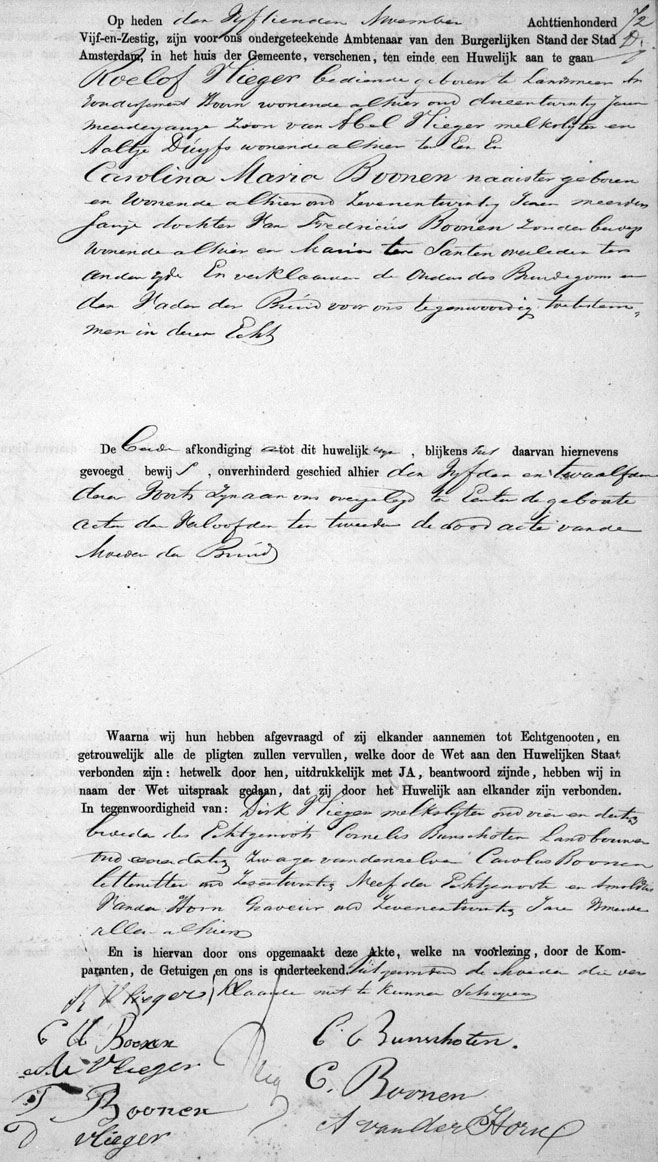 Op heden den Vyftienden November Achttienhonderd 72
Vijf-en-Zestig, zijn voor ons ondergeteekende Ambtenaar van den Burgerlijken Stand der Stad
Amsterdam, in het huis der Gemeente, verschenen, ten einde een Huwelijk aan te gaan
Roelof Vlieger bediende geboren te Landsmeer
Arrondissement Hoorn wonende alhier oud drieentwintig Jaren
meerderjarige Zoon van Abel Vlieger melkslyter en
Aaltje Duyfs wonende alhier ter Een En
Carolina Maria Boonen naaister geboren
en Wonende alhier oud Zevenentwintig Jaren meerder
Jarige dochter Van Fredricus Boonen Zonder beroep
wonende alhier en Maria ten Santen overleden ter
andere zyde En verklaarden de Ouders des Bruidegoms en
den Vader der Bruid voor ons tegenwoordig toetestem-
men in deren Echt
De beide afkondiging tot dit huwelijk , blijkens het daarvan hiernevens
gevoegd bewij s , onverhinderd geschied alhier den Vyfden en twaalfden
dezer Voorts Zyn aan ons overgelegd ten Eersten de geboorte
acten der Verloofden ten tweeden de dood acte van de
Moeder der Bruid
Waarna wij hun hebben afgevraagd of zij elkander aannemen tot Echtgenooten, en
getrouwelijk alle de pligten zullen vervullen, welke door de Wet aan den Huwelijken Staat
verbonden zijn: hetwelk door hen, uitdrukkelijk met JA, beantwoord zijnde, hebben wij in
naam der Wet uitspraak gedaan, dat zij door het Huwelijk aan elkander zijn verbonden.
In tegenwoordigheid van: Dirk Vlieger melkslyter oud vier en dertig
broeder des Echtgenoots Cornelis Bunschoten Landbouwer
oud eenendertig Zwager van denzelven Carolus Boonen
letterzetter oud Zesentwintig Neef der Echtgenoote en Arnoldus
Van der Horn Graveur oud Zevenentwintig Jare Vriend
allen alhier
En is hiervan door ons opgemaakt deze Akte, welke na voorlezing, door de Kom-
paranten, de Getuigen en ons is onderteekend. Uitgenomen de Moeder die ver
klaarde niet te kunnen Schryven
R Vliegers
C M Boonen C. Bunschoten.
A Vlieger
C. Boonen
F Boonen
A van der Horn
D Vlieger